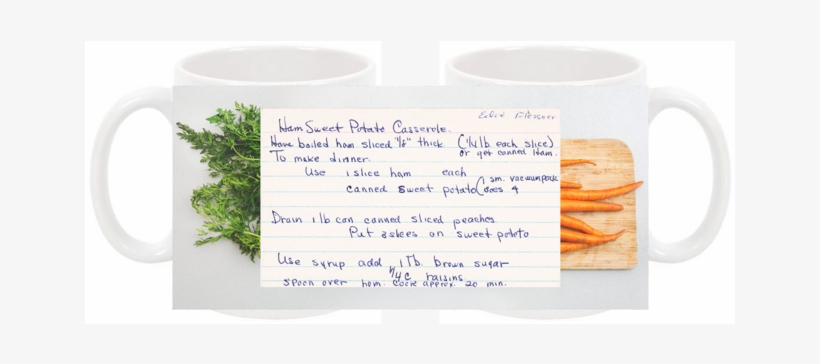 Ham Sweet Potato Casserole.
Have boiled ham sliced "1/8" thick (1/4 lb each slice)
or get canned Ham.
To make dinner.
Use 1 slice ham each
canned sweet potato (1 sm. vacuum pack
does 4
Drain 1 lb can canned sliced peaches
Put 3 slces on sweet potato
Use syrup add 1 Tb. brown sugar
1/4 C raisins
spoon over ham. Cook approx. 20 min.